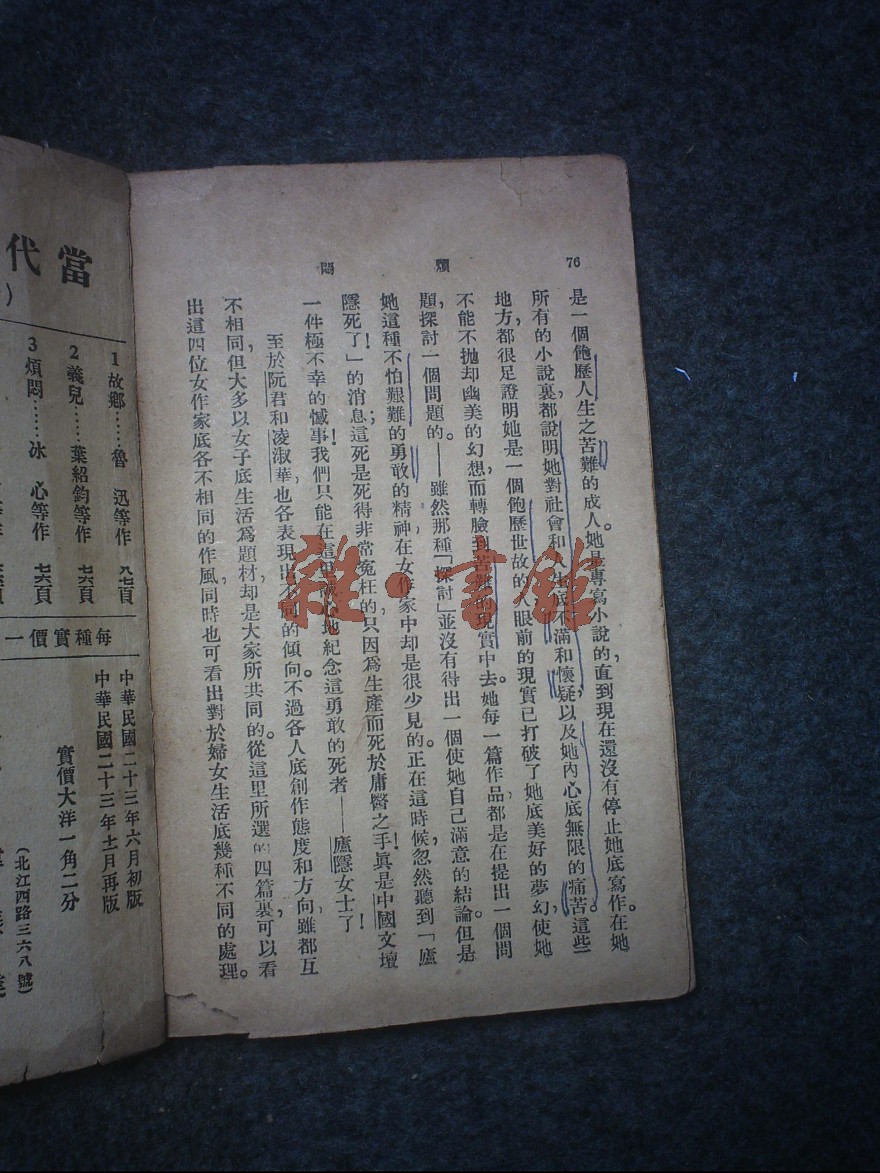 76
煩悶
是一個飽歷人生之苦難的成人。她是專寫小說的,直到現在還沒有停止她底寫作。在她
所有的小說裏,都說明她對社會和人生底不滿和懷疑,以及她內心底無限的痛苦。這些
地方都很足證明她是一個飽歷世故的人,眼前的現實已打破了她底美好的夢幻,使她
不能不拋却幽美的幻想,而轉臉到苦難的現實中去。她每一篇作品,都是在提出一個問
題,探討一個問題的。——雖然那種「探討」並沒有得出一個使她自己滿意的結論。但是
她這種不怕艱難的勇敢的精神,在女作家中却是很少見的。正在這時候,忽然聽到「廬
隱死了!」的消息;這死是死得非常寃枉的,只因爲生產而死於庸醫之手!眞是中國文壇
一件極不幸的憾事!我們只能在這里誠心地紀念這勇敢的死者——廬隱女士了!
至於阮君和凌淑華,也各表現出不同的傾向。不過各人底創作態度和方向,雖都互
不相同,但大多以女子底生活爲題材,却是大家所共同的。從這里所選的四篇裏,可以看
出這四位女作家底各不相同的作風,同時也可看出對於婦女生活底幾種不同的處理。
當代
)
1 故鄉……魯 迅等作 八七頁
2 義兒……葉紹鈞等作 七六頁
3 煩悶……冰 心等作 七六頁
每種實價一
中華民國二十三年六月初版
中華民國二十三年十一月再版
實價大洋一角二分
(北江西路三六八號)
雜·書館